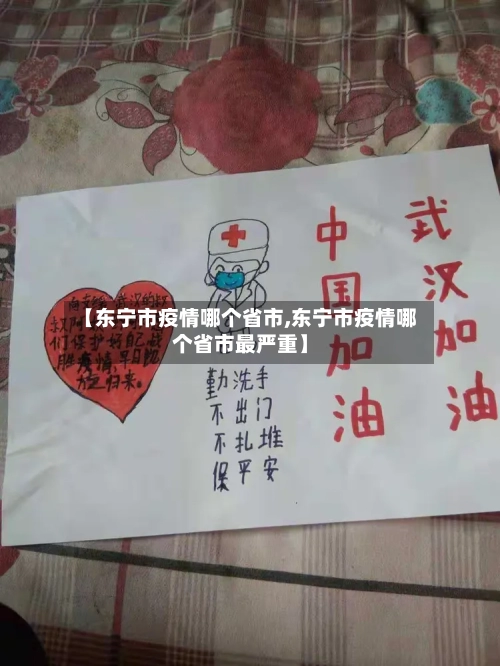 武汉加油
中国加油
向支援武汉的叔
叔阿
们保护好自己,战
胜疫情,早日凯
旋归来。
【东宁市疫情哪个省市,东宁市疫情哪
个省市最严重】
勤洗手
不出门
不扎堆
保平安